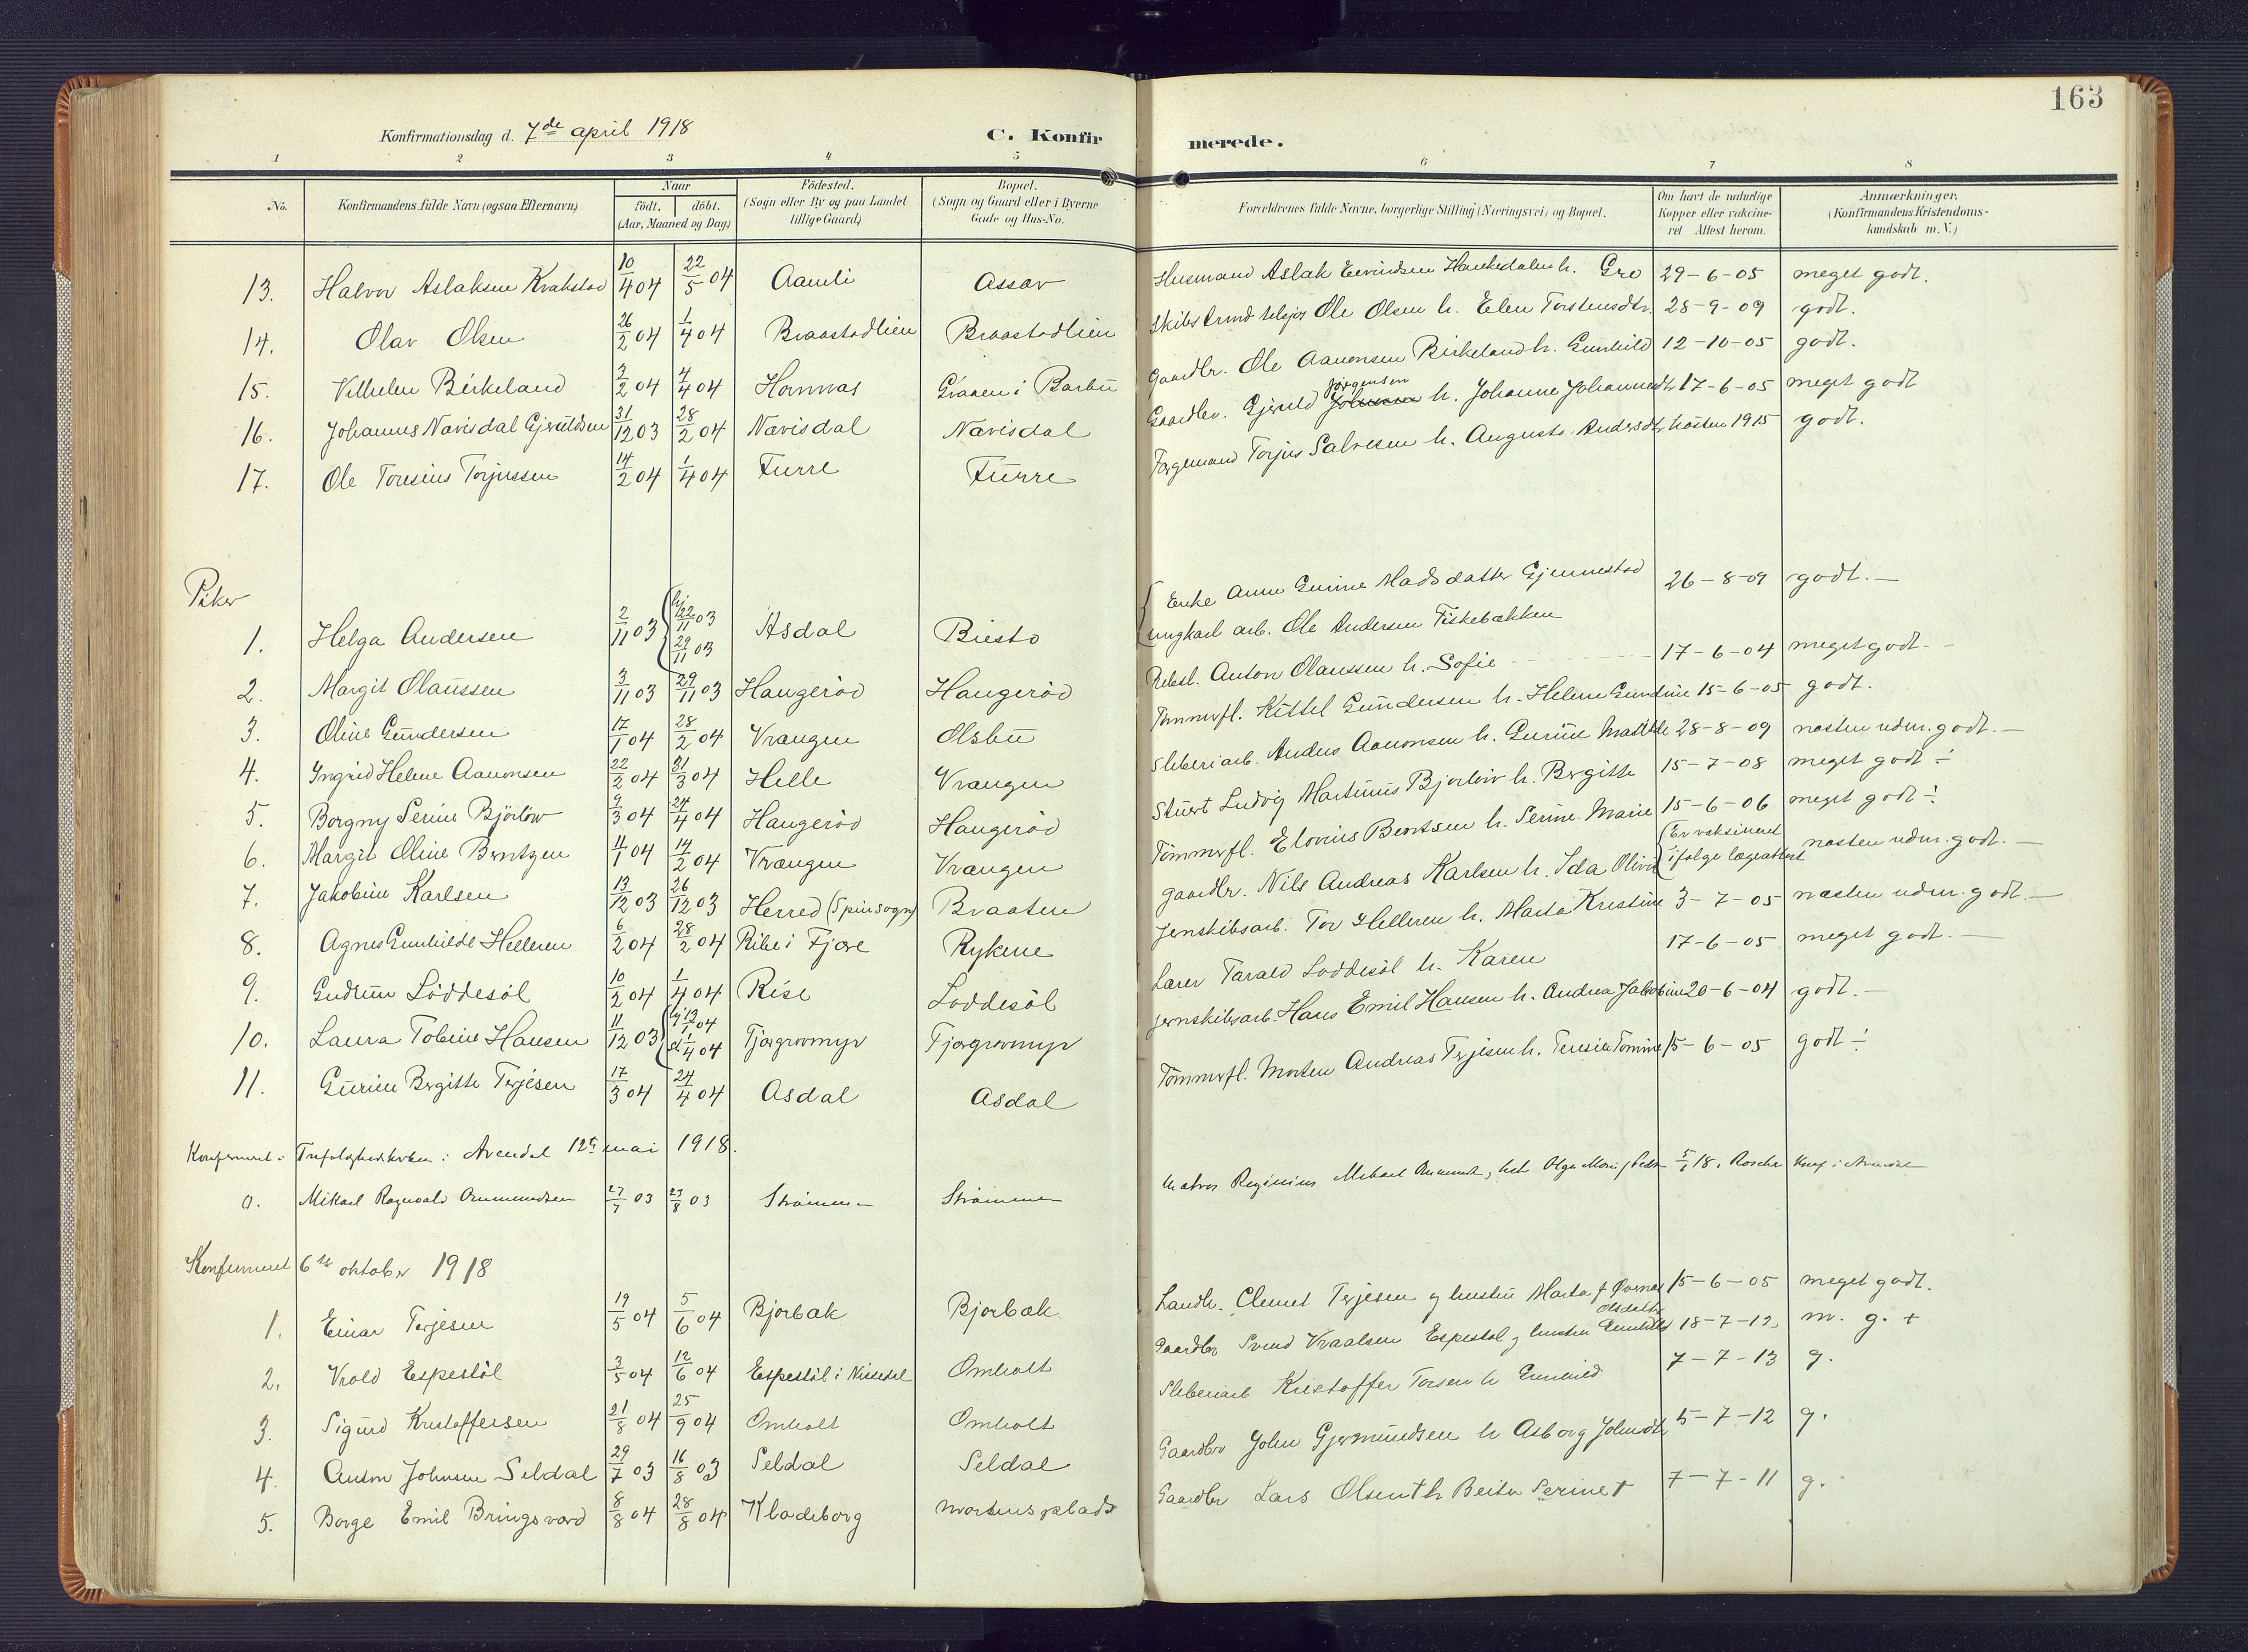 163
Konfirmationsdag d. 7de april 1918 C. Konfirmerede.
1 2 3 4 5 6 7 8
No. Konfirmandens fulde Navn (ogsaa Efternavn) Naar født. døbt. (Aar, Maaned og Dag) Fødested. (Sogn eller By og paa Landet tillige Gaard) Bopæl. (Sogn og Gaard eller i Byerne Gade og Hus-No. Forældrenes fulde Navne, borgerlige Stilling (Næringsvei) og Bopæl. Om havt de naturlige Kopper eller vakcineret Attest herom. Anmærkninger. (Konfirmandens Kristendomskundskab m. V.)
13. Halvor Aslaksen Kvakstad 10/4 04 22/5 04 Aamli Assav Husmand Aslak Eivindsen Haukedalen h. Gro 29-6-05 meget godt.
14. Olav Olsen 26/2 04 1/4 04 Braastadlien Braastadlien Ole Olsen h. Elen Torstensdtr 28-9-09 godt.
15. Vilhelm Birkeland 3/2 04 4/4 04 Hornnæs Graaen i Barbu Gaardbr. Ole Aanonsen Birkeland h. Gunhild 12-10-05 godt.
16. Johannes Nævisdal Gjeruldsen 31/12 03 28/2 04 Nævisdal Nævisdal Gaardbr. Gjeruld Jørgensen h. Johanne Johannesdtr 17-6-05 meget godt
17. Ole Toresius Torjussen 14/2 04 1/4 04 Furre Furre Færgemand Torjus Salvesen h. Augusta Andersdtr høsten 1915 godt.
Piker
1. Helga Andersen 2/11 03 hj 22/11 03 29/11 03 Asdal Biestø Enke Anne Gurine Madsdatter Gjennestad 26-8-09 godt.—
ungkarl arb. Ole Andersen Fiskebækken
2. Margit Olaussen 3/11 03 29/11 03 Haugerød Haugerød Rebsl. Anton Olaussen h. Sofie 17-6-04 meget godt.-
3. Oline Gundersen 17/1 04 28/2 04 Vrangen Ølsbu Tømmerfl. Kittel Gundersen h. Helene Gundine 15-6-05 godt.
4. Ingrid Helene Aanonsen 22/2 04 31/3 04 Helle Vrangen Sliberiarb. Anders Aanonsen h. Gurine Matilde 28-8-09 næsten udm. godt.—
5. Borgny Serine Bjorløw 9/3 04 24/4 04 Haugerød Haugerød Stuert Ludvig Martinius Bjorløw h. Bergitte 15-7-08 meget godt ÷
6. Margit Oline Berntzen 11/1 04 14/2 04 Vrangen Vrangen Tømmerfl. Elovius Berntsen h. Serine Marie 15-6-06 meget godt ÷
7. Jakobine Karlsen 13/12 03 26/12 03 Herred (Spind sogn) Braaten gaardbr. Nils Andreas Karlsen h. Ida Olivia Er vaksineret ifølge lægeattest næsten udm. godt.—
8. Agnes Gunhilde Helleren 6/2 04 28/2 04 Ribe i Fjære Rykene Jernskibsarb. Tor Helleren h. Marta Kristine 3-7-05 næsten udm. godt.—
9. Gudrun Løddesøl 10/2 04 1/4 04 Rise Løddesøl Lærer Tarald Løddesøl h. Karen 17-6-05 meget godt.—
10. Laura Tobine Hansen 11/12 03 hj 13/1 04 st 1/4 04 Tjøgrovmyr Tjøgrovmyr Jernskibsarb. Hans Emil Hansen h. Andrea Jakobine 20-6-04 godt.—
11. Gurine Bergitte Terjesen 17/3 04 24/4 04 Asdal Asdal Tømmerfl. Morten Andreas Terjesen h. Teresia Tomine 15-6-05 godt ÷
Konfirmert i Trefoldighetskirken i Arendal 12te mai 1918.
a. Mikael Ragnvald Ommundsen 27/7 03 23/8 03 Strømmen Strømmen Matros Reginius Mikael Ommundsen, hustr Olga Marie 5/1 18. Roscher Konf i Arendal
Konfirmeret 6te oktober 1918
1. Einar Terjesen 19/5 04 5/6 04 Bjorbæk Bjorbæk Landh. Clemet Terjesen og hustru Marta f Øvernes 15-6-05 meget godt.
2. Vrold Espestøl 3/5 04 12/6 04 Espestøl i Nissedal Omholt Gaardbr Svend Vraalsen Espestøl og hustru Gunhild Olsdatter 18-7-12. m. g. +
3. Sigurd Kristoffersen 21/8 04 25/9 04 Omholt Omholt Sliberiarb Kristoffer Torsen h Gunnild 7-7-13 g.
4. Anton Johnsen Seldal 29/7 03 16/8 03 Seldal Seldal Gaardbr John Gjermundsen h Asborg Johnsdtr 5-7-12 g.
5. Borge Emil Bringsværd 8/8 04 28/8 04 Kladeborg mortensplads Gaardbr Lars Olsen † h Berta Serine † 7-7-11 g.